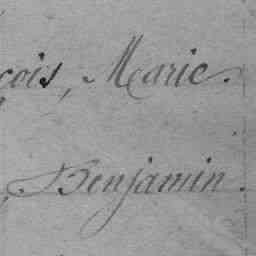 çois, Marie.
, Benjamin.